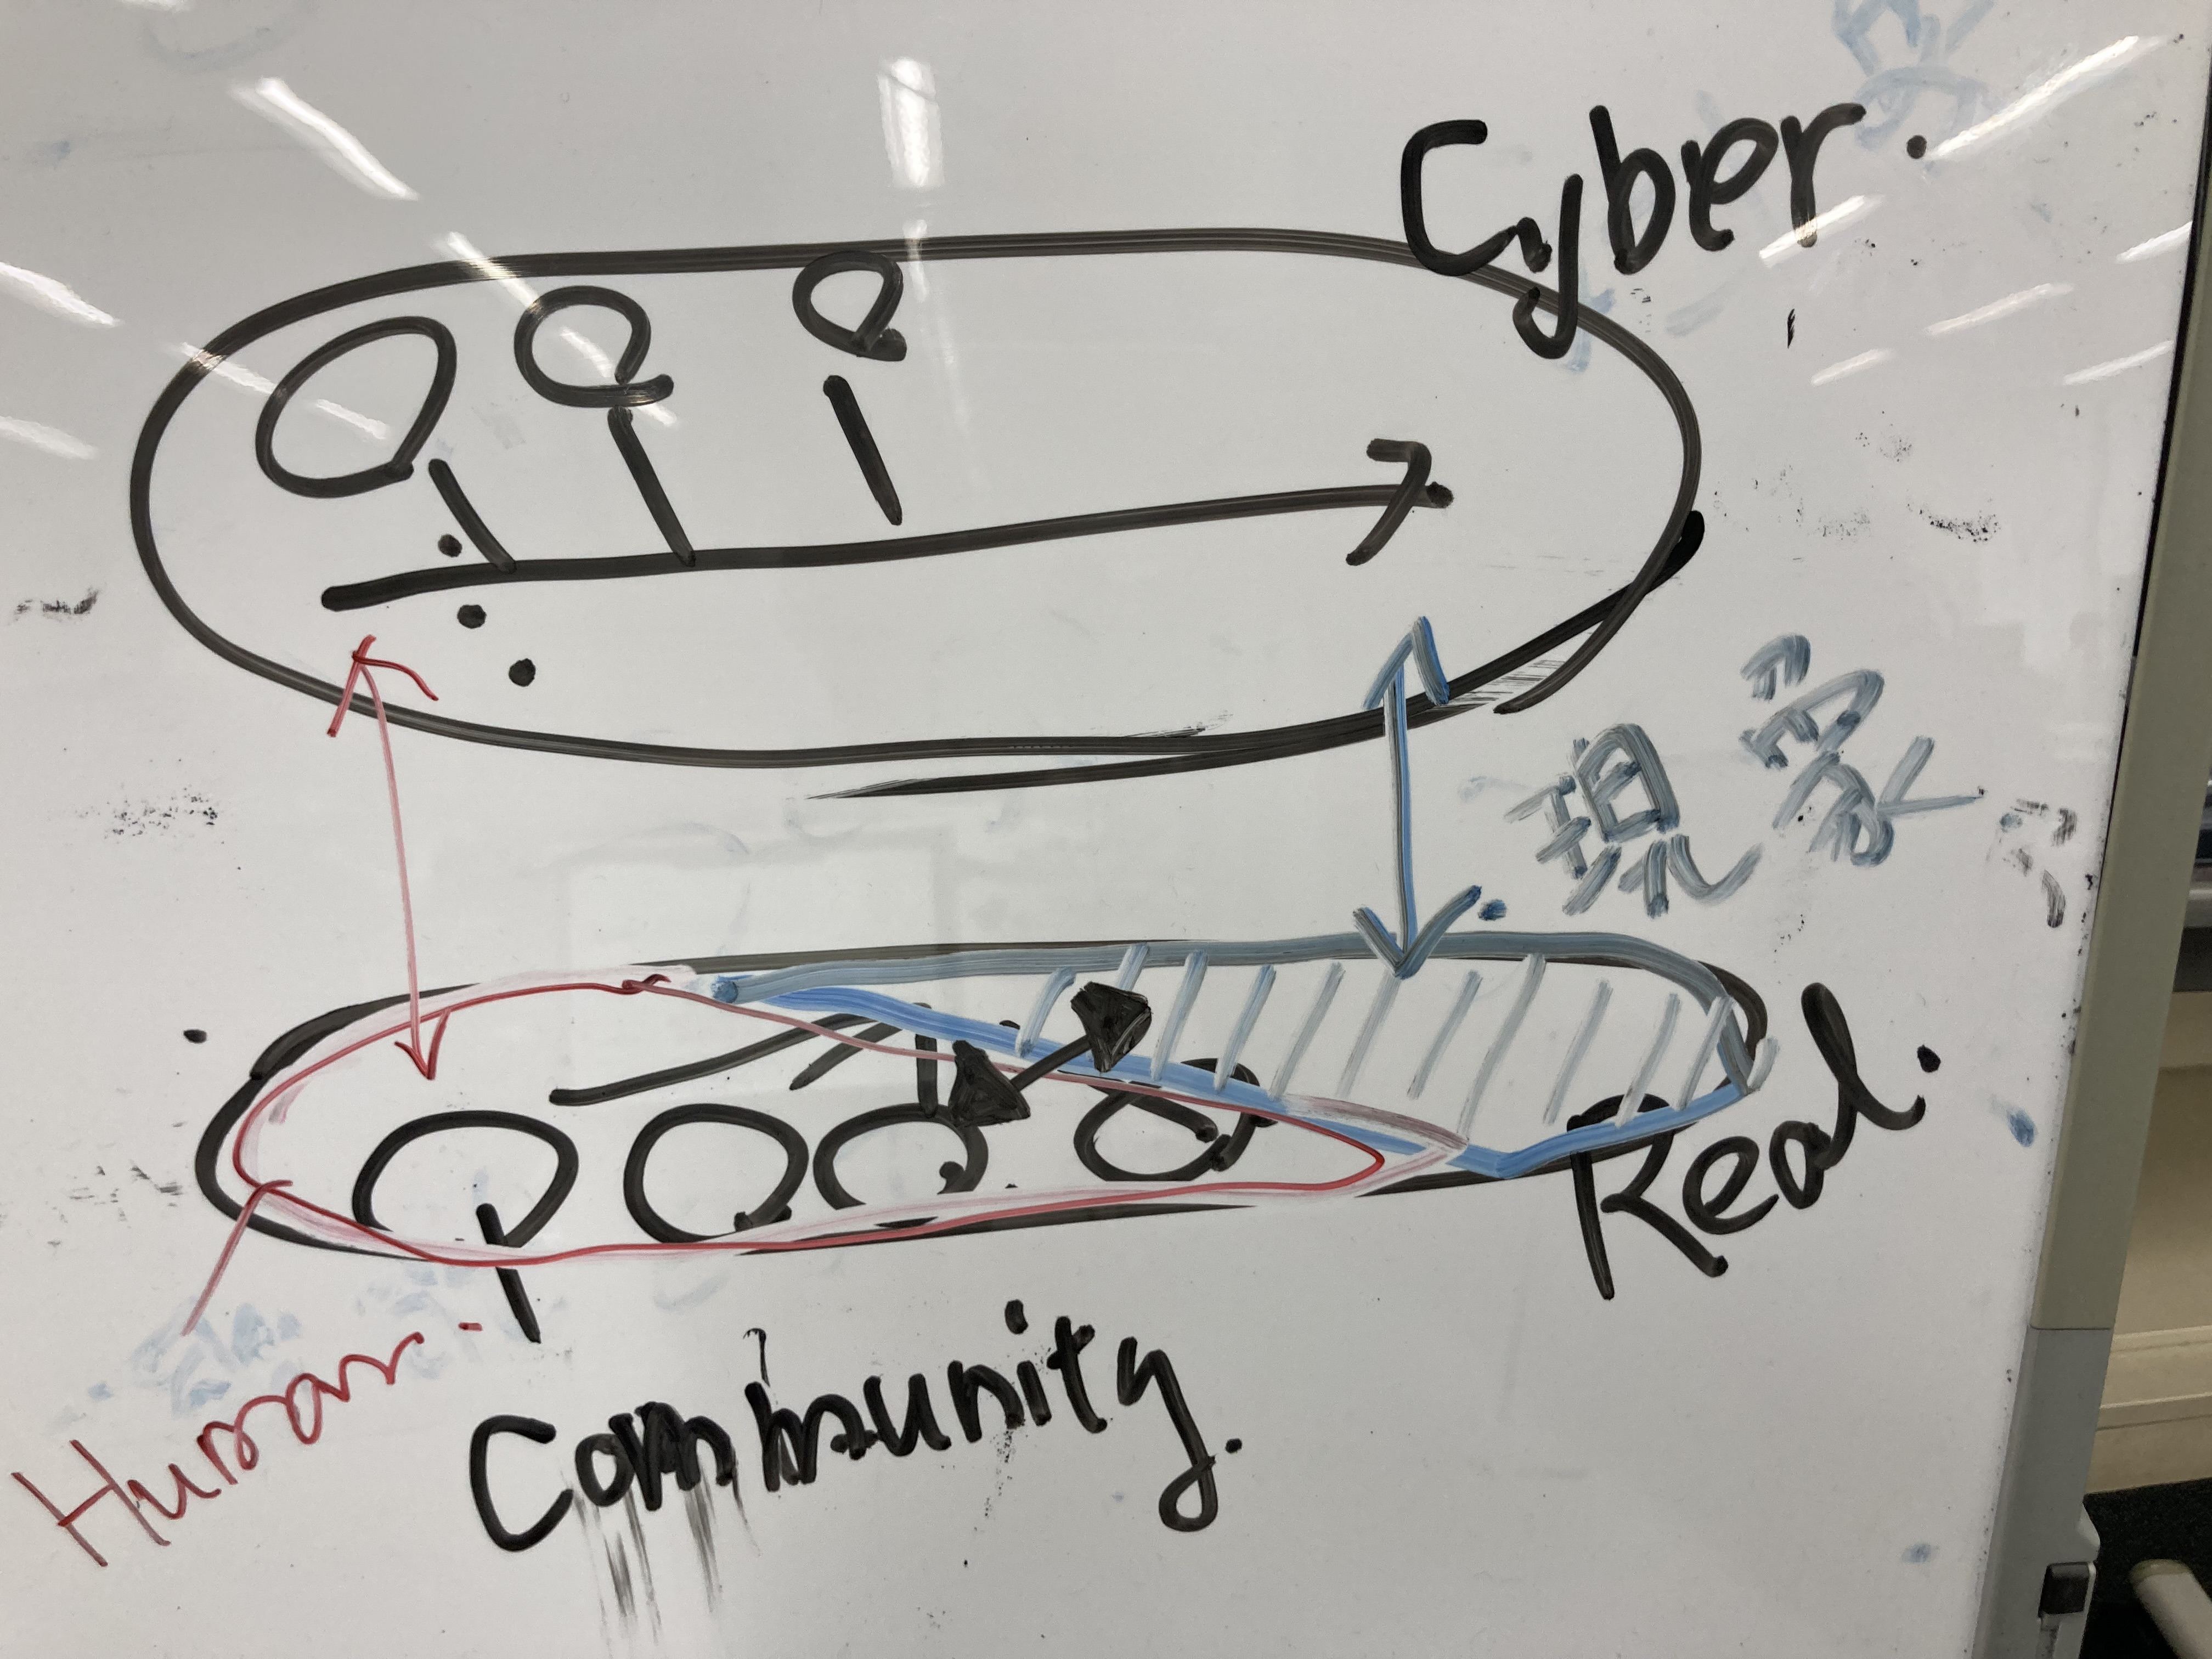 Cyber.
現象
Real.
Human.
Community.